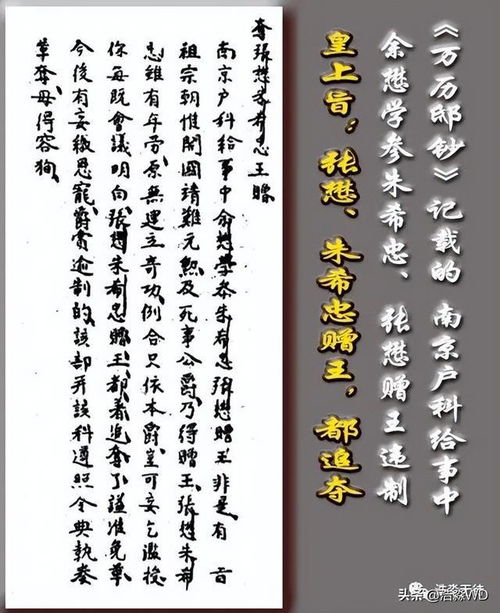 《万历邸钞》记载的 南京户科给事中
余懋学参朱希忠、张懋赠王违制
皇上旨：张懋、朱希忠赠王，都追夺
奪張懋朱希忠王贈
南京户科給事中俞懋學參朱希忠張懋贈王非是有 旨
祖宗朝惟開國靖難元勲及死事公爵乃得贈王張懋朱希
忠雖有年勞原無建立奇功例合只依本爵豈可妄乞濫授
你每既會議明向張懋朱希忠贈王都着追奪了諡准免革
今後有妄徼恩寵爵賞逾制的該部并該科遵照令典執奏
革奪毋得容徇
头条@浩淼WD